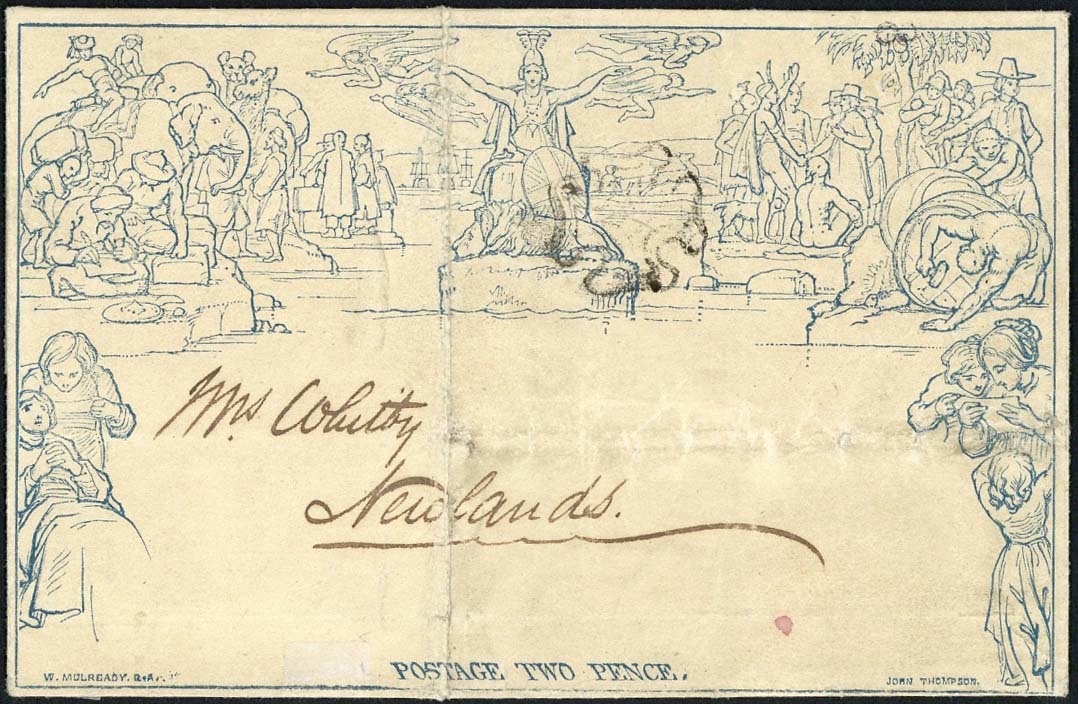 Mrs. Whitby
Newlands.
POSTAGE TWO PENCE.
W. MULREADY. R.A.
JOHN THOMPSON.